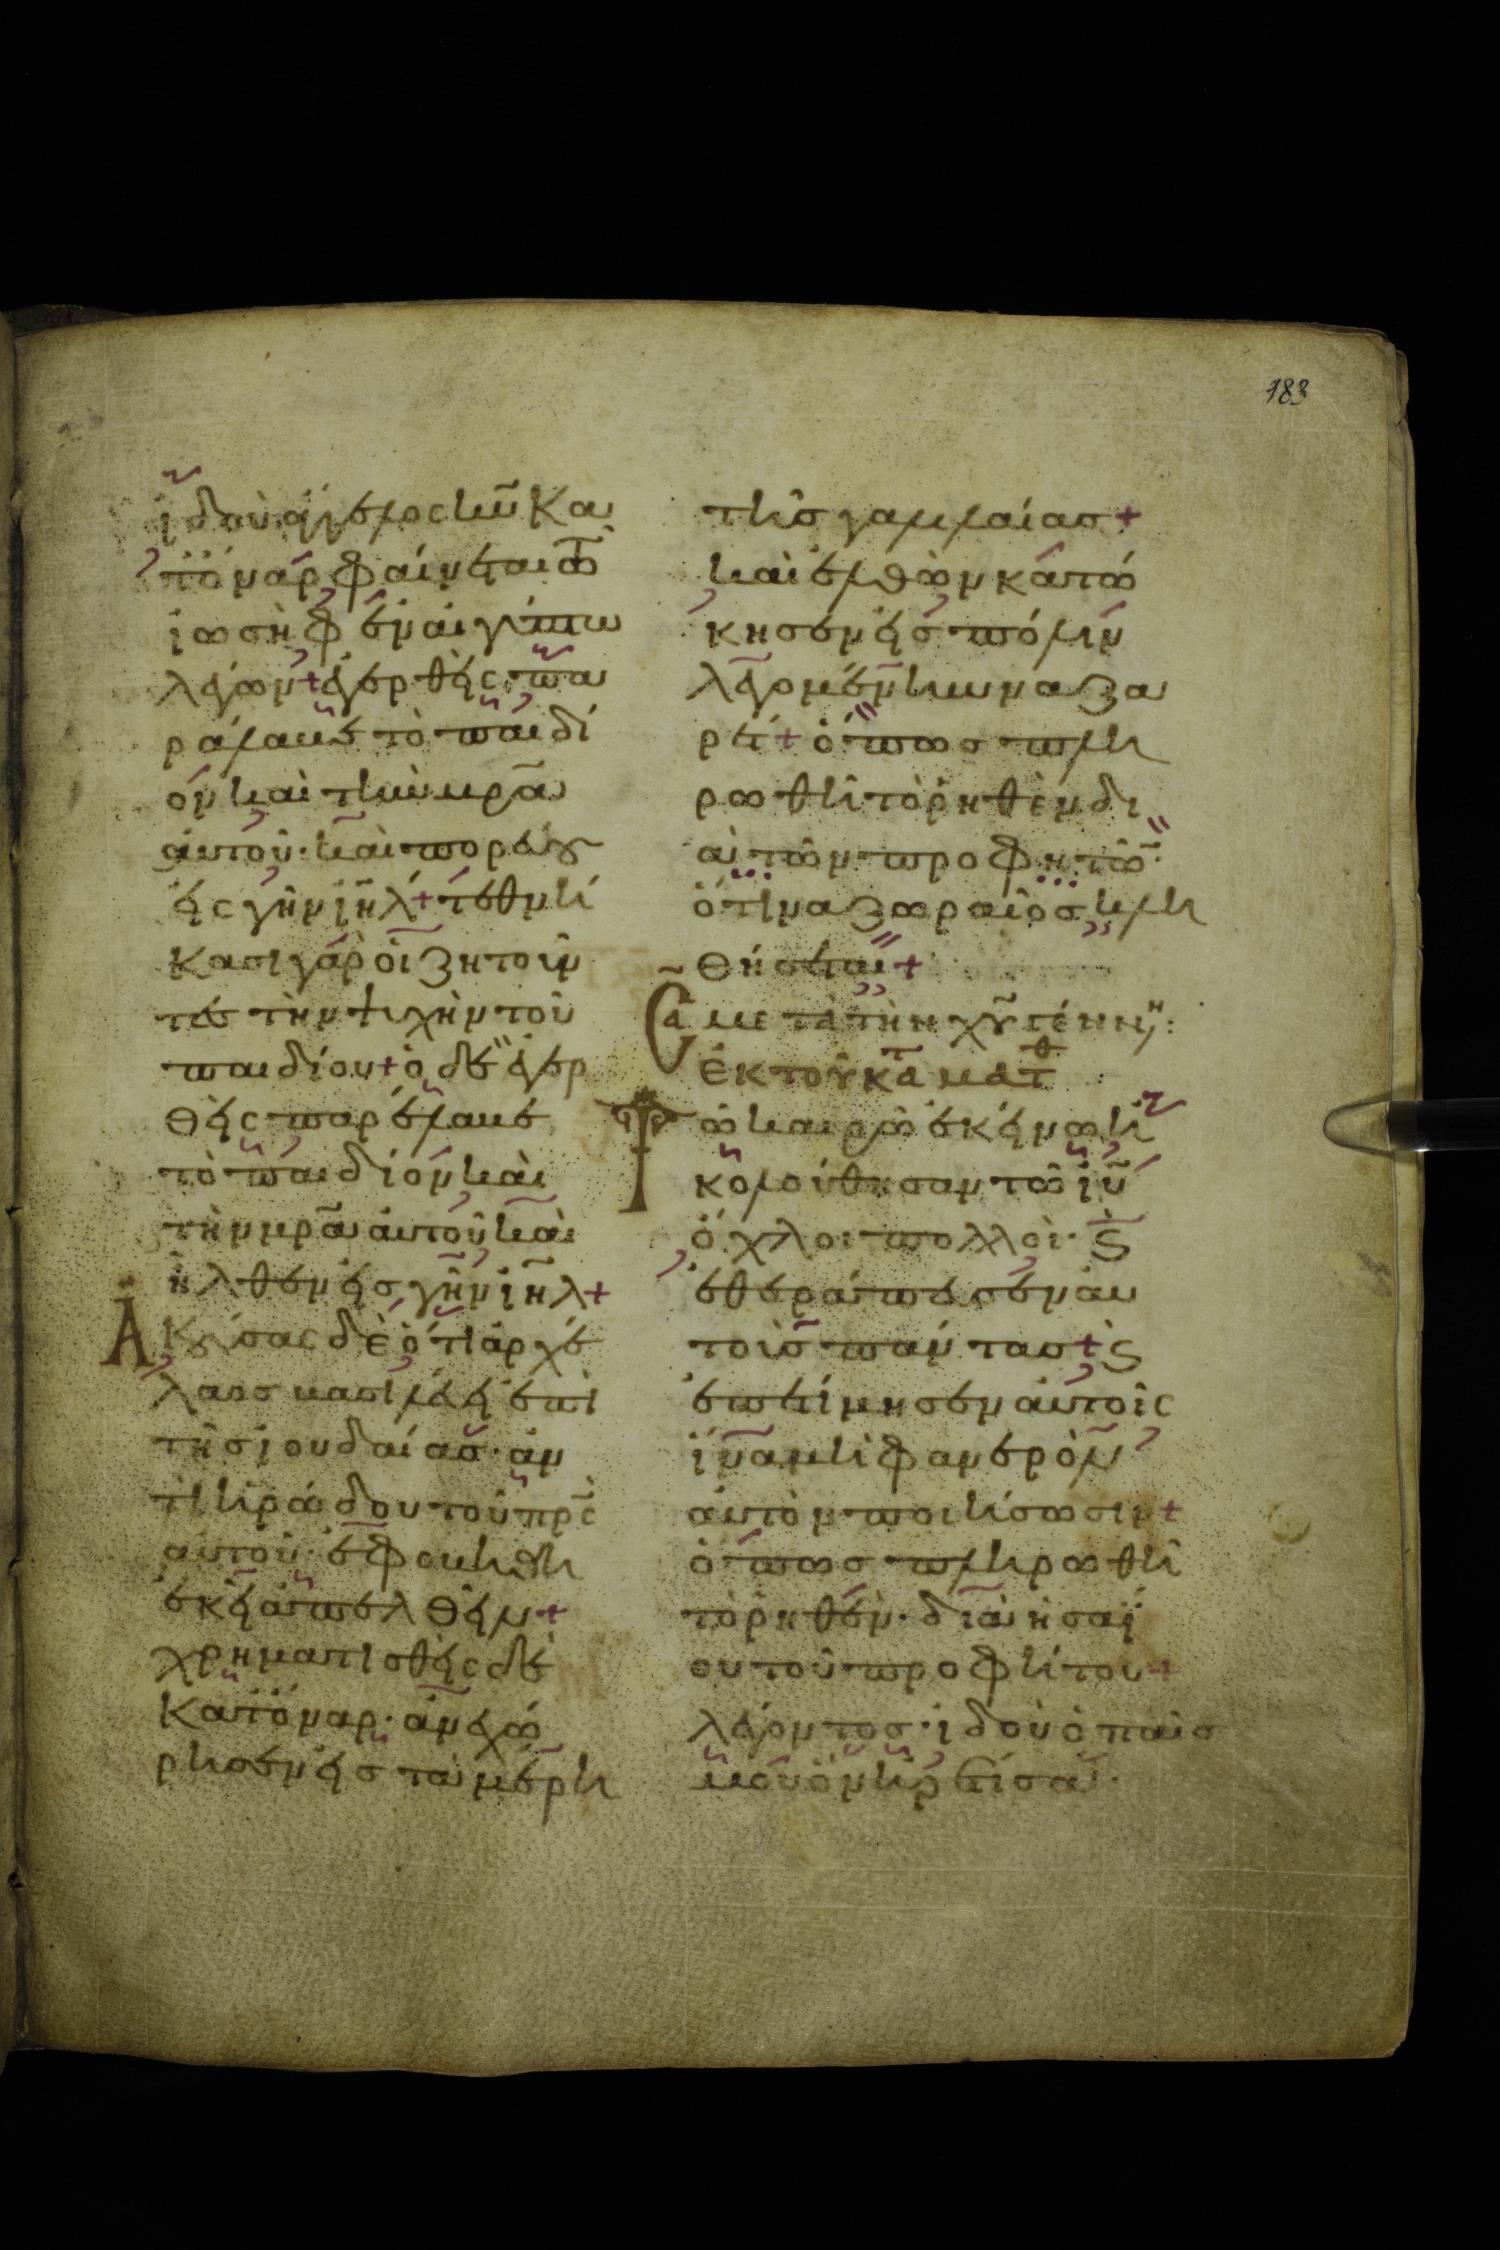 183
ἰδοὺ ἄγγελος κυ̅ κα
τ' ὄναρ φαίνεται τῶ
ἰωσὴφ ἐν αἰγύπτω
λέγων + ἐγερθεὶς πα
ράλαβε τὸ παιδί
ον καὶ τὴν μρ̅α
αὐτοῦ · καὶ πορεύου
εἰς γῆν ιη̅λ + τεθνή
κασι γὰρ οἱ ζητοῦν
τες τὴν ψυχὴν τοῦ
παιδίου + ὁ δὲ ἐγερ
θεὶς παρέλαβε
τὸ παιδίον καὶ
τὴν μρ̅α αὐτοῦ καὶ
ἦλθεν εἰς γῆν ιη̅λ +
Ἀκούσας δὲ ὅτι ἀρχέ
λαος βασιλεύει ἐπὶ
τῆς ἰουδαίας · ἀν
τὶ ἡρώδου τοῦ πρ̅ς
αὐτοῦ · ἐφοβήθη
ἐκεῖ ἀπελθεῖν +
χρηματισθεὶς δὲ
κατ' ὄναρ · ἀνεχώ
ρησεν εἰς τὰ μέρη
τῆς γαλιλαίας +
καὶ ἐλθὼν κατώ
κησεν εἰς πόλιν
λεγομένην ναζα
ρέτ + ὅπως πλη
ρωθῆ τὸ ῥηθὲν δι
ὰ τῶν προφητῶν ·
ὅτι ναζωραῖος κλη
θήσεται +
Σα μετὰ τὴν χυ̅ γένην :
ἐκ τοῦ κατα ματθ
Τῶ καιρῶ ἐκείνω ἠ
κολούθησαν τῶ ιυ̅
ὄχλοι πολλοὶ · ϗ
ἐθεράπευσεν αὐ
τοὺς πάντας + ϗ
ἐπετίμησεν αὐτοῖς
ἵνα μὴ φανερὸν
αὐτὸν ποιήσωσιν +
ὅπως πληρωθῆ
τὸ ῥηθὲν · διὰ ἠσαΐ
ου τοῦ προφήτου +
λέγοντος · ἰδοὺ ὁ παῖς
μου ὃν ἡρέτισα ·